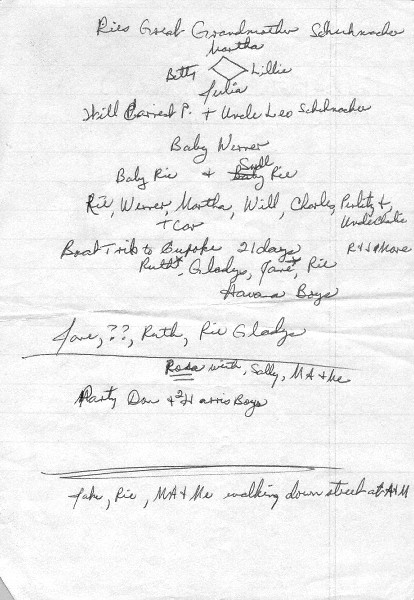 Ries Great Grandmother Schuhmacher
Martha
Betty Lillie
Julia
Will Earnest P. + Uncle Leo Schuhmacher
Baby Werner
Baby Rie + Rie
Rie, Werner, Martha, Will, Charles,
+ Car
Boat Trip to Europe 21 days
Ruth, Gladys, Jane, Rie
Havana Boys
Jane, ??, Ruth, Rie Gladys
Rosa with, Sally, MA + Me
Party Don + 2 Harris Boys
Jake, Rie, MA + Me walking down street at A+M